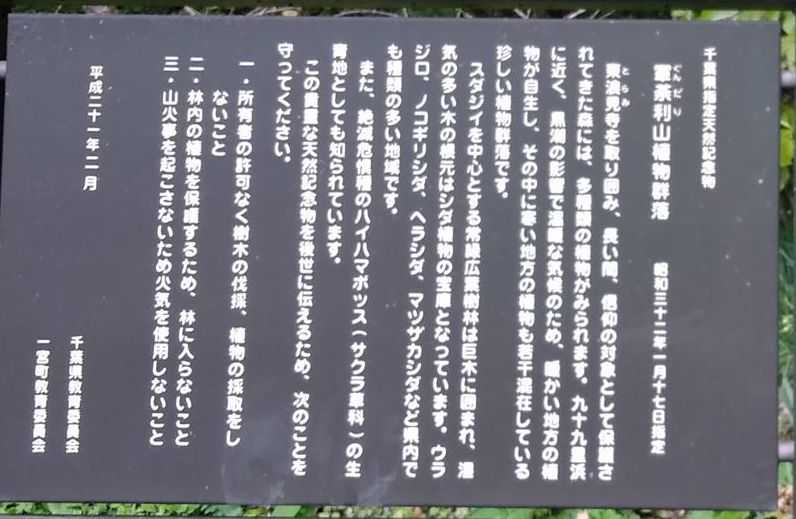 千葉県指定天然記念物
軍荼利山植物群落　昭和三十二年一月十七日指定
ぐんだり
東浪見寺を取り囲み、長い間、信仰の対象として保護さ
とらみ
れてきた森には、多種類の植物がみられます。九十九里浜
に近く、黒潮の影響で温暖な気候のため、暖かい地方の植
物が自生し、その中に寒い地方の植物も若干混在している
珍しい植物群落です。
スダジイを中心とする常緑広葉樹林は巨木に囲まれ、湿
気の多い木の根元はシダ植物の宝庫となっています。ウラ
ジロ、ノコギリシダ、ヘラシダ、マツザカシダなど県内で
も種類の多い地域です。
また、絶滅危惧種のハイハマボッス（サクラ草科）の生
育地としても知られています。
この貴重な天然記念物を後世に伝えるため、次のことを
守ってください。
一・所有者の許可なく樹木の伐採、植物の採取をし
ないこと
二・林内の植物を保護するため、林に入らないこと
三・山火事を起こさないため火気を使用しないこと
平成二十一年二月
千葉県教育委員会
一宮町教育委員会